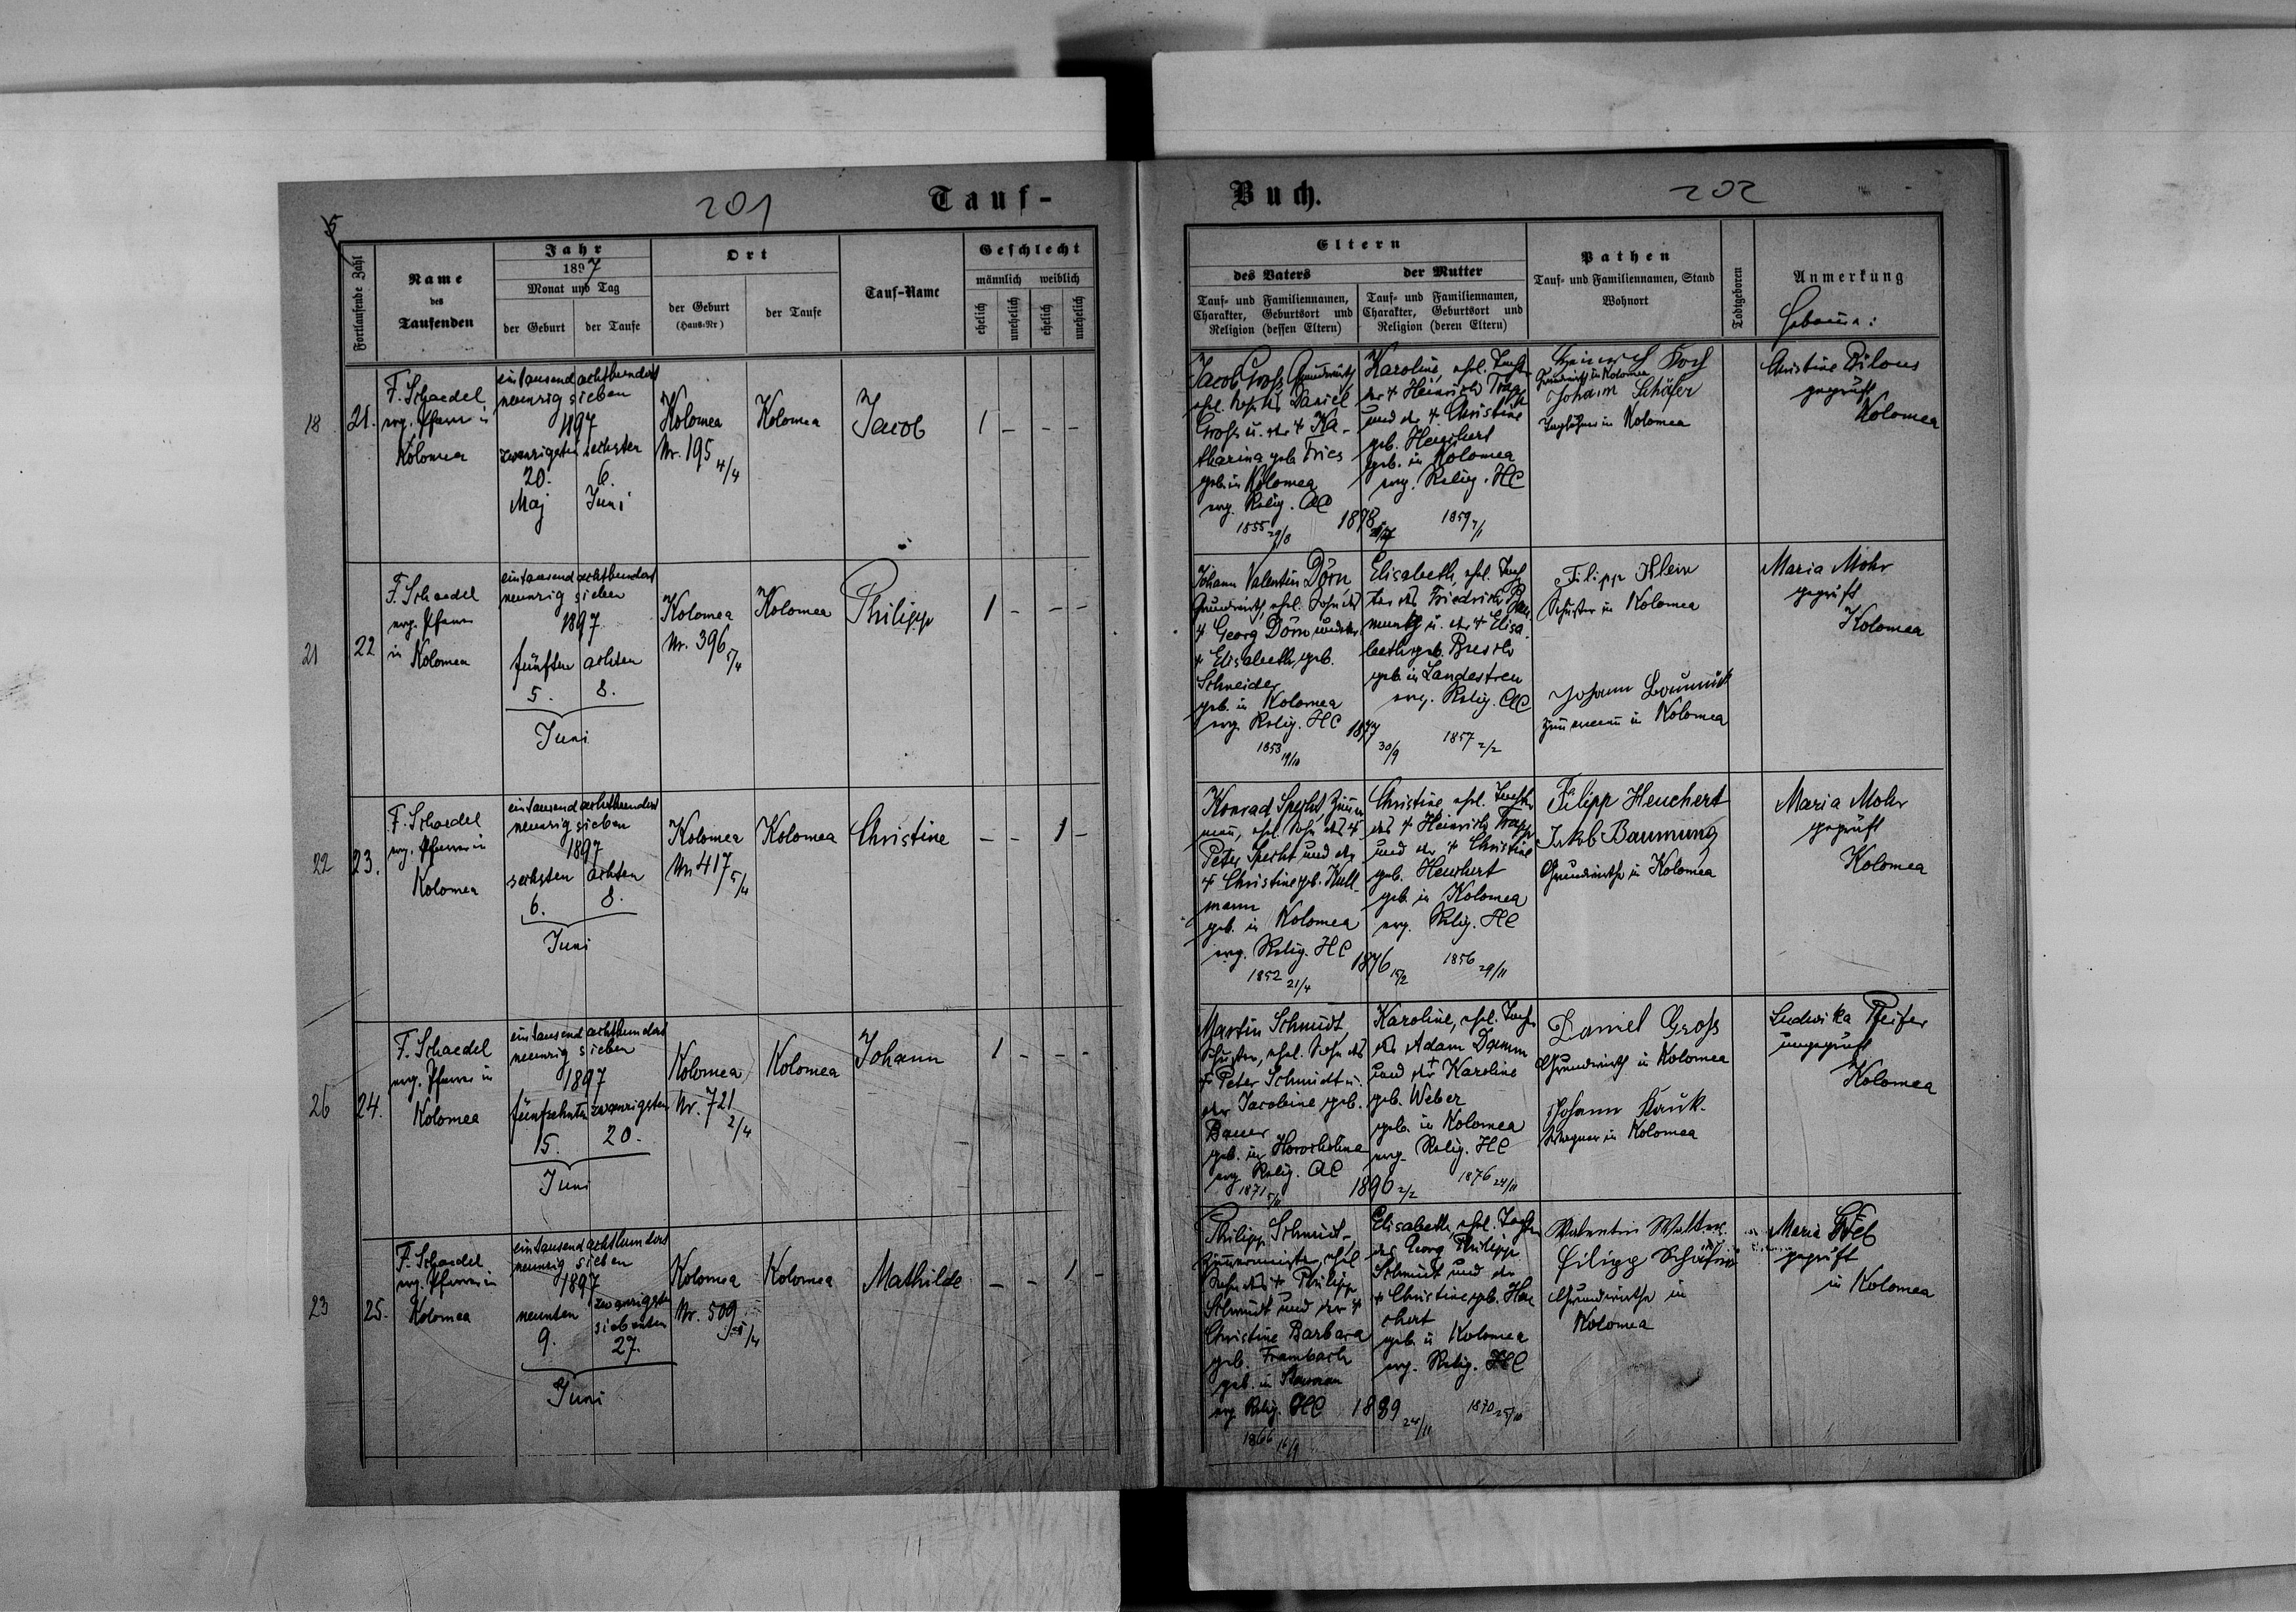 201
Tauf-
Fortlaufende Zahl
Name
des
Taufenden
Jahr
1897
Monat und Tag
der Geburt
der Taufe
Ort
der Geburt
(Haus-Nr)
der Taufe
Tauf-Name
Geschlecht
männlich weiblich
ehelich
unehelich
ehelich
unehelich
18
21.
F. Schaedel
evg. Pfarrer in
Kolomea
eintausend achthundert
neunzig sieben
1897
zwanzigsten sechsten
20. 6.
Maj Juni
Kolomea
Nr. 195
4/4
Kolomea
Jacob
1 - - -
21
22
F. Schaedel
evg. Pfarrer
in Kolomea
eintausend achthundert
neunzig sieben
1897
fünften achten
5. 8.
Juni
Kolomea
Nr. 396
5/4
Kolomea
Philipp
1 - - -
22
23.
F. Schaedel
evg. Pfarrer in
Kolomea
eintausend achthundert
neunzig sieben
1897
sechsten achten
6. 8.
Juni
Kolomea
Nr. 417
5/4
Kolomea
Christine
- - 1 -
26
24.
F. Schaedel
evg. Pfarrer in
Kolomea
eintausend achthundert
neunzig sieben
1897
fünfzehnten zwanzigsten
15. 20.
Juni
Kolomea
Nr. 721
2/4
Kolomea
Johann
1 - - -
23
25.
F. Schaedel
evg. Pfarrer in
Kolomea
eintausend achthundert
neunzig sieben
1897
neunten zwanzigsten
siebenten
9. 27.
Juni
Kolomea
Nr. 509
5/4
Kolomea
Mathilde
- - 1 -
Buch.
202
Eltern
des Vaters
der Mutter
Tauf- und Familiennamen,
Charakter, Geburtsort und
Religion (dessen Eltern)
Tauf- und Familiennamen,
Charakter, Geburtsort und
Religion (deren Eltern)
Pathen
Tauf- und Familiennamen, Stand
Wohnort
Todtgeboren
Anmerkung
Hebamme:
Jacob Gross, Grundwirth
ehel. des Daniel
Gross u. der + Ka-
tharina geb. Fries
geb. in Kolomea
evg. Relig. AC
1855 29/8
1878
Karoline, ehel. Tocht.
der + Heinrich Trapp
und der + Christine
geb. Heuchert
geb. in Kolomea
evg. Relig. HC
1859 7/1
Heinrich
Grundwirth in Kolomea
Johann Schäfer
Taglöhner in Kolomea
Christine Bilous
geprüft
Kolomea
Johann Valentin Dörn
Grundwirth, ehel. Sohn des
+ Georg Dörn und der
+ Elisabeth, geb.
Schneider
geb. in Kolomea
evg. Relig. HC
1853 19/10
1877
30/9
Elisabeth, ehel. Toch
ter des Friedrich Bau
munk u. der + Elisa
beth geb.
geb. in Landestreu
evg. Relig. AC
1857 2/2
Filipp Klein
Schuster in Kolomea
Johann
Zimmermann in Kolomea
Maria Mohr
geprüft
Kolomea
Konrad Specht, Zimmer
mann, ehel. Sohn des +
Peter Specht und der
+ Christine geb. Kull-
mann
geb. in Kolomea
evg. Relig. HC
1852 21/4
1876
15/2
Christine, ehel. Tochter
des + Heinrich Trapp
und der + Christine
geb. Heuchert
geb. in Kolomea
evg. Relig. HC
1856 29/11
Filipp Heuchert
Jakob Baumung
Grundwirthe in Kolomea
Maria Mohr
geprüft
Kolomea
Martin Schmidt
Schuster, ehel. Sohn des
+ Peter Schmidt u.
der Jacobine, geb.
Bauer
geb. in Horocholina
evg. Relig. AC
1871
1896 2/2
Karoline, ehel. Toch
des Adam Damm
und der + Karoline
geb. Weber
geb. in Kolomea
evg. Relig. HC
1876 24/11
Daniel Gross
Grundwirth in Kolomea
Johann
Wagner in Kolomea
Ludwika Pfeifer
ungeprüft
Kolomea
Philipp Schmidt,
Zimmermeister, ehel
Sohn des + Philipp
Schmidt und der +
Christine Barbara
geb. Frambach
geb. in
evg. Relig. HC
1866
1889
24/11
Elisabeth, ehel. Tochter
des Georg Philipp
Schmidt und der
+ Christine, geb. Heu
chert
geb. in Kolomea
evg. Relig. HC
1870 25/10
Valentin
Filipp Schäfer
Grundwirthe in
Kolomea
Maria
geprüft
in Kolomea